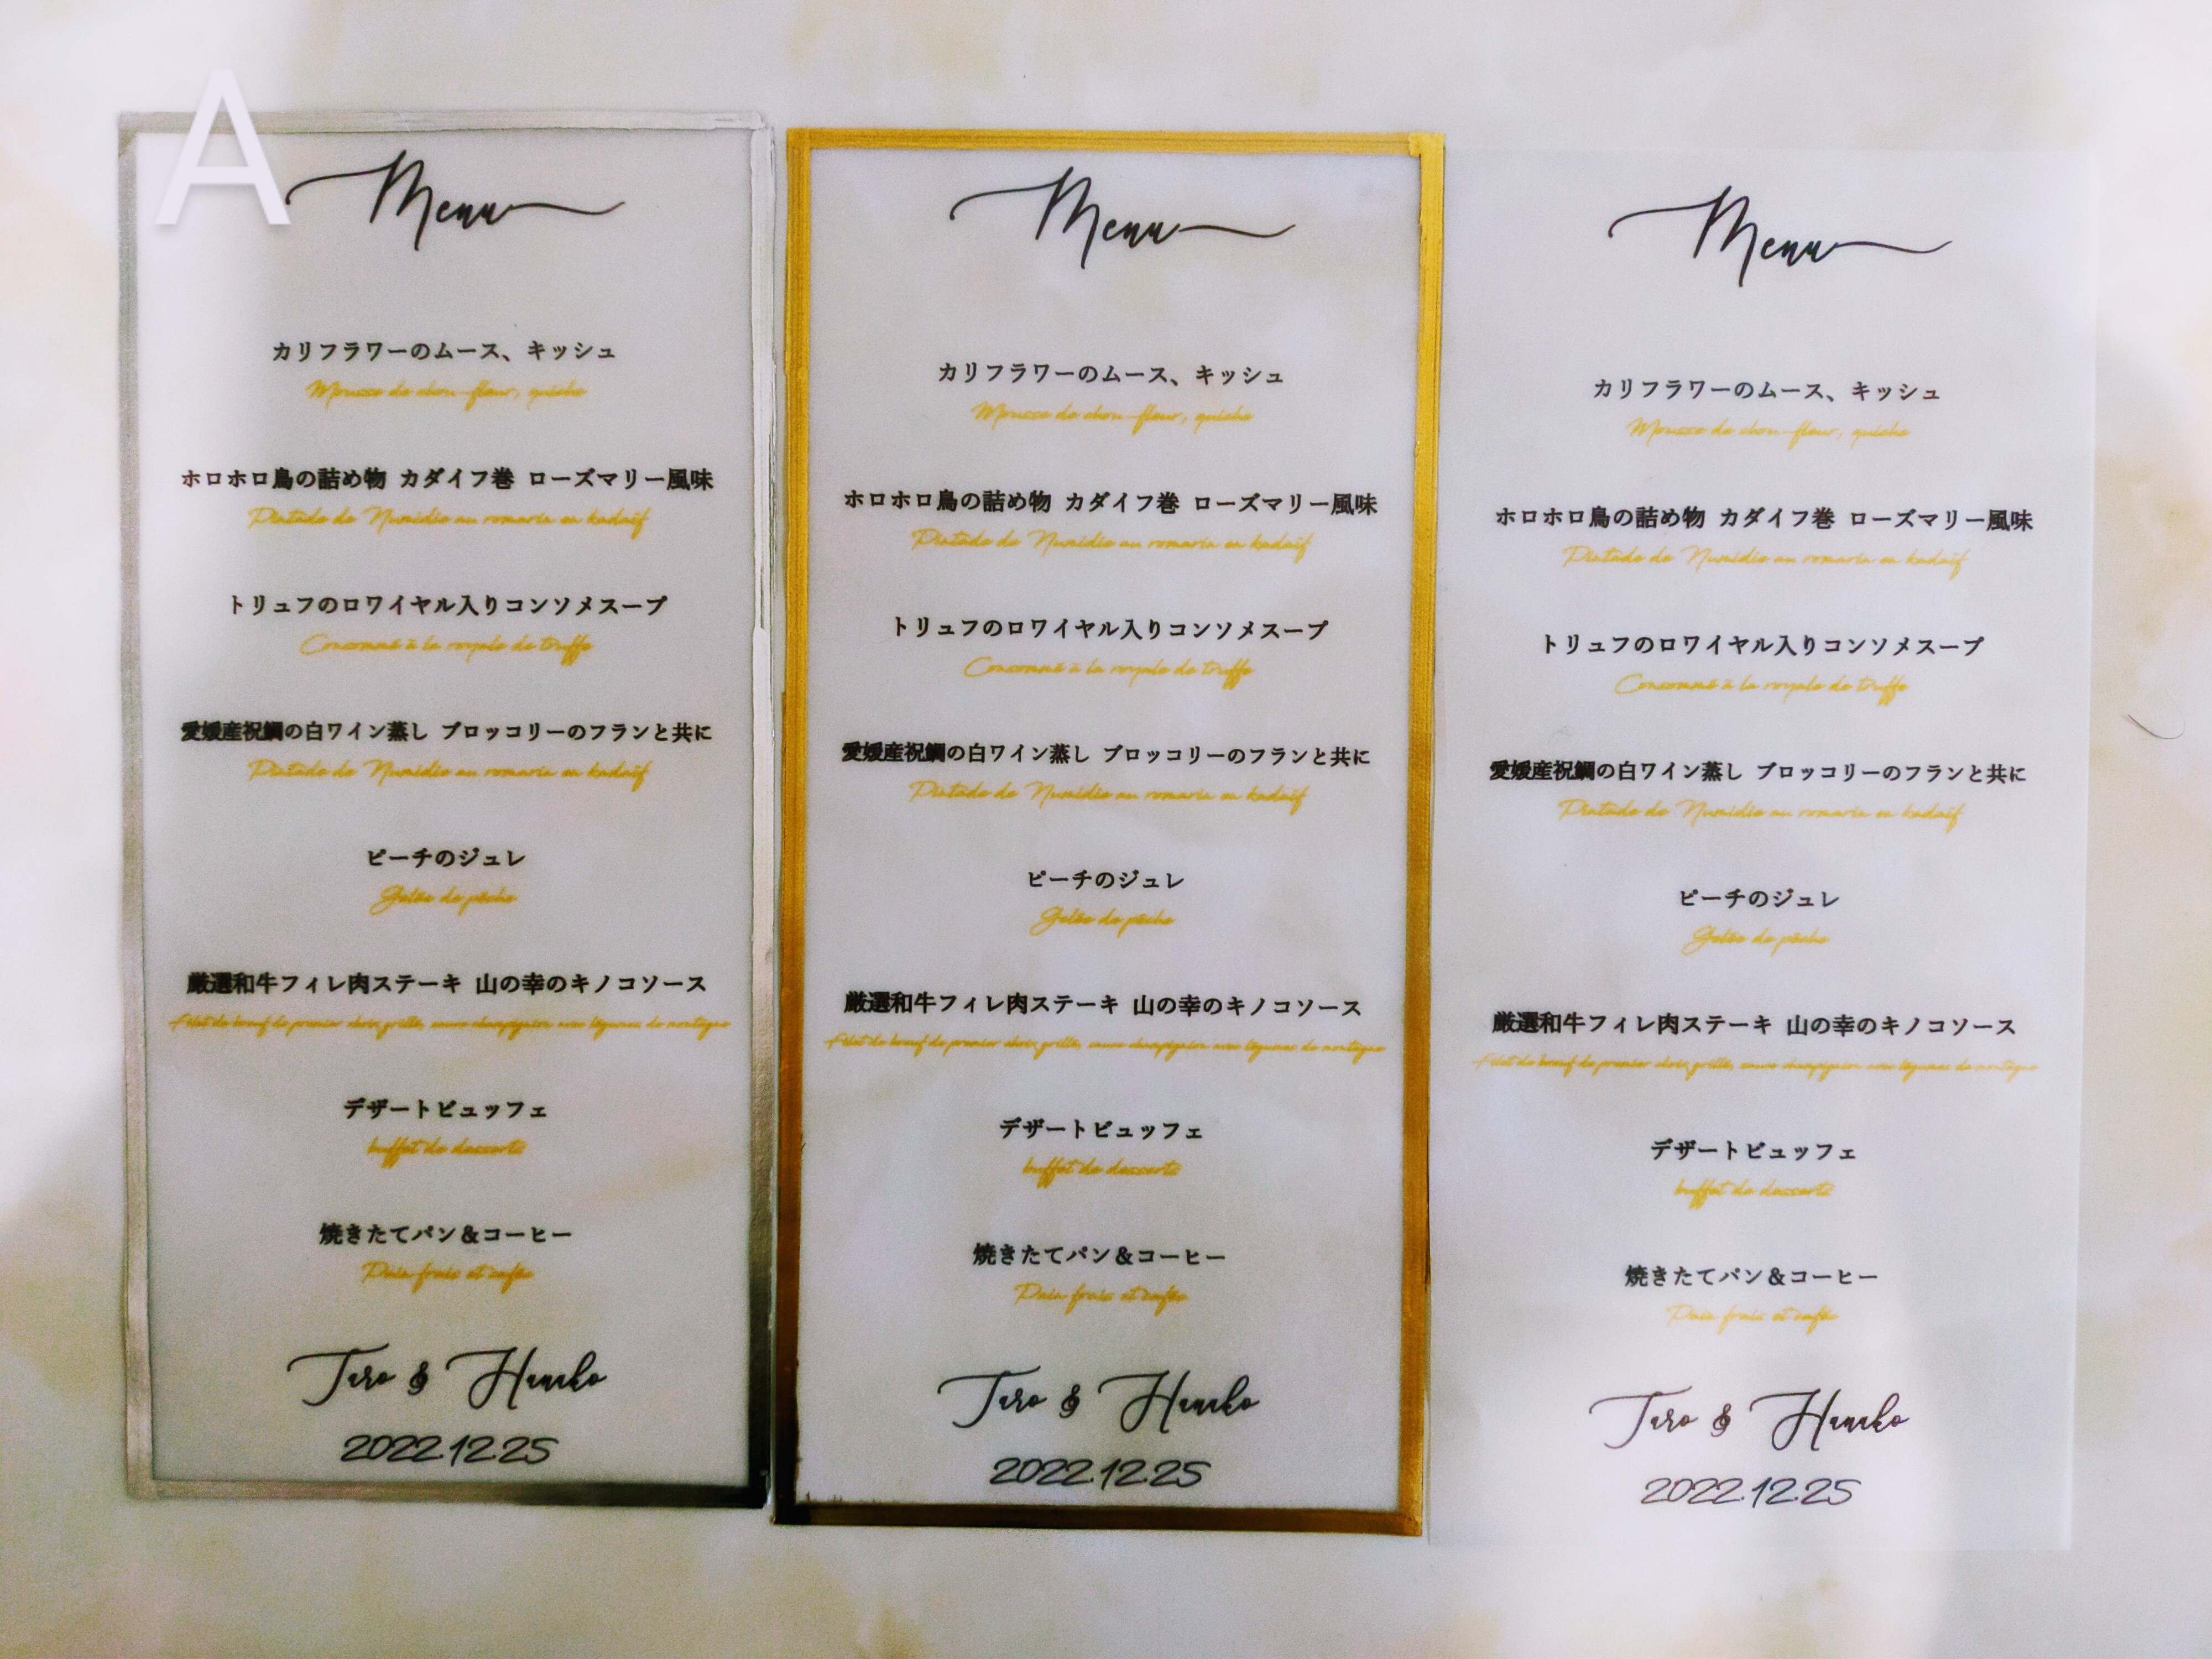 A
Menu
カリフラワーのムース、キッシュ
Mousse de chou-fleur, quiche
ホロホロ鳥の詰め物 カダイフ巻 ローズマリー風味
Pintade de Numidie au romarin en kadaïf
トリュフのロワイヤル入りコンソメスープ
Consommé à la royale de truffe
愛媛産祝鯛の白ワイン蒸し ブロッコリーのフランと共に
Pintade de Numidie au romarin en kadaïf
ピーチのジュレ
Gelée de pêche
厳選和牛フィレ肉ステーキ 山の幸のキノコソース
Filet de boeuf de premier choix grillé, sauce champignon avec légumes de montagne
デザートビュッフェ
buffet de desserts
焼きたてパン&コーヒー
Pain frais et café
Taro & Hanako
2022.12.25
Menu
カリフラワーのムース、キッシュ
Mousse de chou-fleur, quiche
ホロホロ鳥の詰め物 カダイフ巻 ローズマリー風味
Pintade de Numidie au romarin en kadaïf
トリュフのロワイヤル入りコンソメスープ
Consommé à la royale de truffe
愛媛産祝鯛の白ワイン蒸し ブロッコリーのフランと共に
Pintade de Numidie au romarin en kadaïf
ピーチのジュレ
Gelée de pêche
厳選和牛フィレ肉ステーキ 山の幸のキノコソース
Filet de boeuf de premier choix grillé, sauce champignon avec légumes de montagne
デザートビュッフェ
buffet de desserts
焼きたてパン&コーヒー
Pain frais et café
Taro & Hanako
2022.12.25
Menu
カリフラワーのムース、キッシュ
Mousse de chou-fleur, quiche
ホロホロ鳥の詰め物 カダイフ巻 ローズマリー風味
Pintade de Numidie au romarin en kadaïf
トリュフのロワイヤル入りコンソメスープ
Consommé à la royale de truffe
愛媛産祝鯛の白ワイン蒸し ブロッコリーのフランと共に
Pintade de Numidie au romarin en kadaïf
ピーチのジュレ
Gelée de pêche
厳選和牛フィレ肉ステーキ 山の幸のキノコソース
Filet de boeuf de premier choix grillé, sauce champignon avec légumes de montagne
デザートビュッフェ
buffet de desserts
焼きたてパン&コーヒー
Pain frais et café
Taro & Hanako
2022.12.25